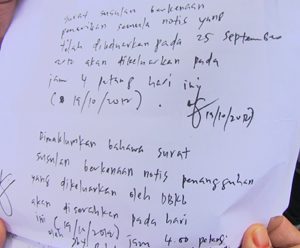 surat susulan berkenaan
penarikan semula notis yang
telah dikeluarkan pada 25 September
2012 akan dikeluarkan pada
jam 4 petang hari ini
(19/10/2012).
19/10/2012)
Dimaklumkan bahawa surat
susulan berkenaan notis penangguhan
yang dikeluarkan oleh DBKL
akan diserahkan pada hari
ini (19/10/2012)
jam 4.00 petang